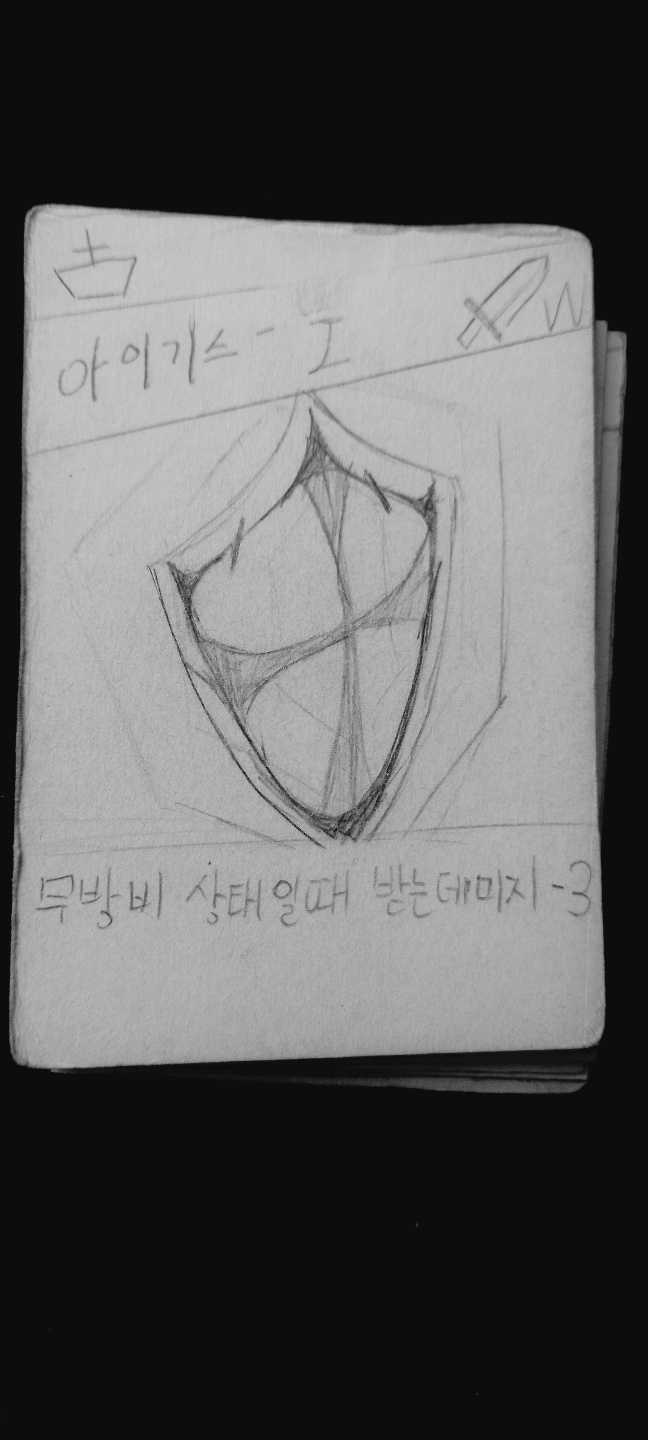 아이기스 - I
W
무방비 상태일때 받는데미지 -3